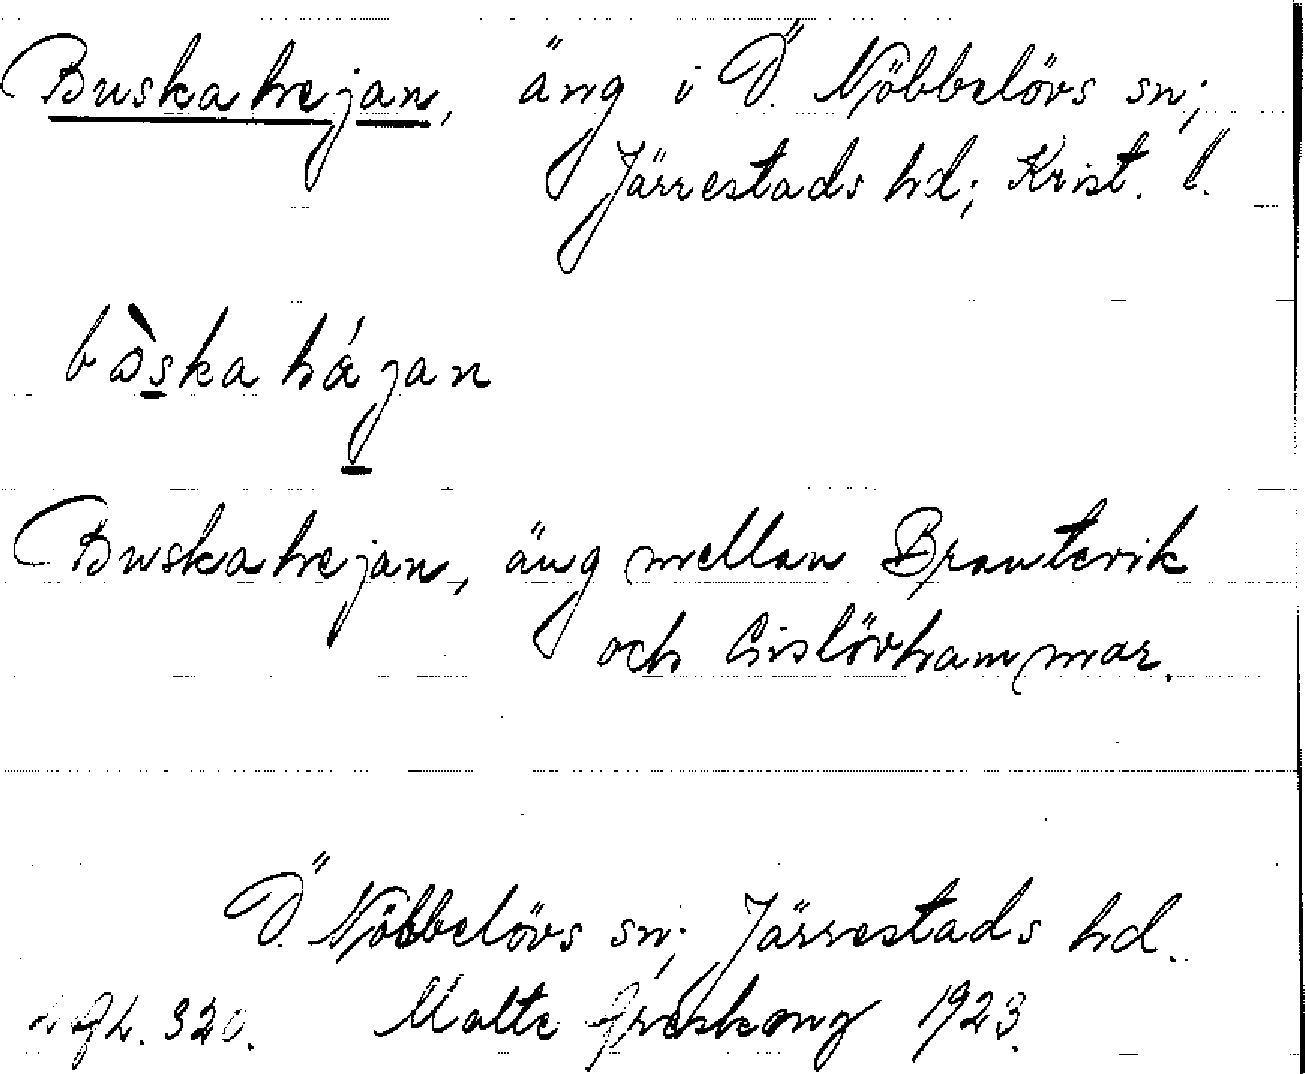 Buskahejan, äng i Ö. Nöbbelövs sn;
Järrestads hd; Krist. l.
bòska hájan
Buskahejan, äng mellan Brantevik
och Gislövhammar.
Ö. Nöbbelövs sn; Järrestads hd.
320. Malte 1923.